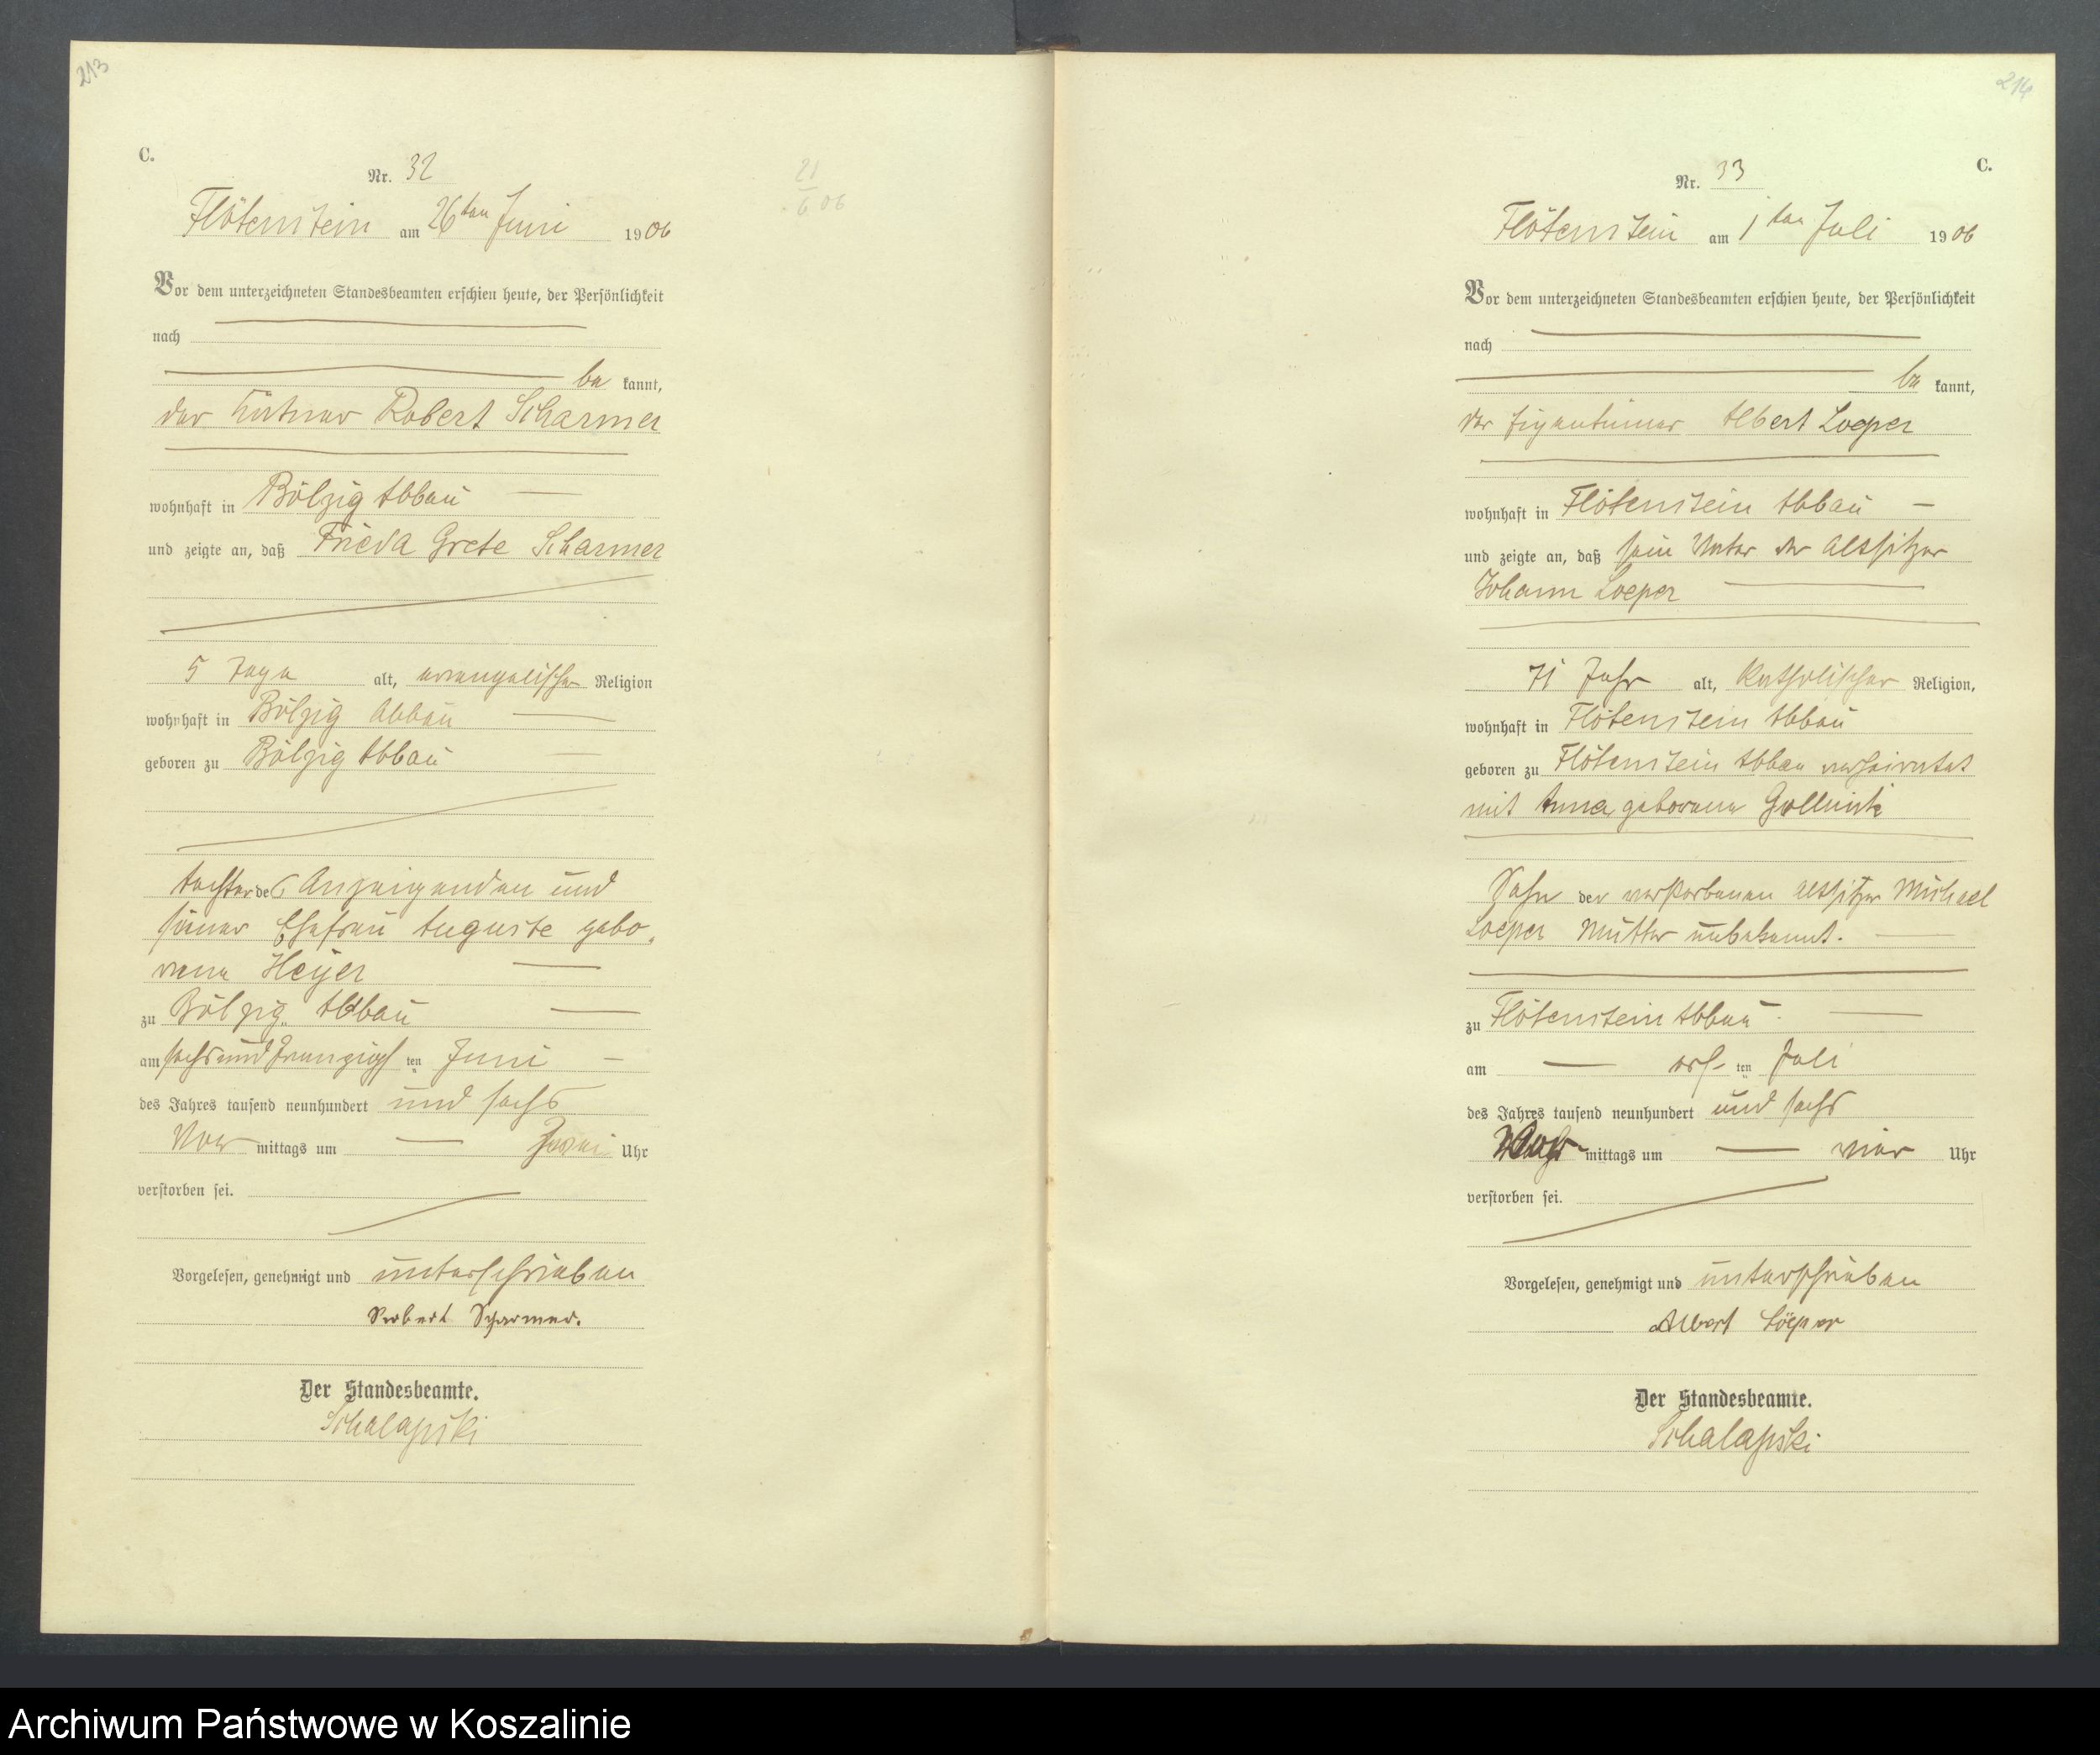 213
C.
Nr. 32
21
6 06
Flötenstein am 26ten Juni 1906
Vor dem unterzeichneten Standesbeamten erschien heute, der Persönlichkeit
nach
be kannt,
der Kätner Robert Scharmer
wohnhaft in Bölzig Abbau
und zeigte an, daß Frieda Grete Scharmer
5 Tage alt, evangelischer Religion
wohnhaft in Bölzig Abbau
geboren zu Bölzig Abbau
tochter des Anzeigenden und
seiner Ehefrau Auguste gebo„
rene Heyer
zu Bölzig Abbau
am sechsundzwanzigs ten Juni
des Jahres tausend neunhundert und sechs
Vor mittags um zwei Uhr
verstorben sei.
Vorgelesen, genehmigt und unterschrieben
Robert Scharmer.
Der Standesbeamte.
Schalapski
214
C.
Nr. 33
Flötenstein am 1ten Juli 1906
Vor dem unterzeichneten Standesbeamten erschien heute, der Persönlichkeit
nach
be kannt,
der Eigentümer Albert Loeper
wohnhaft in Flötenstein Abbau
und zeigte an, daß sein Vater der Altsitzer
Johann Loeper
71 Jahr alt, katholischer Religion,
wohnhaft in Flötenstein Abbau
geboren zu Flötenstein Abbau verheiratet
mit Anna geborene Gollnick
Sohn der verstorbenen Altsitzer Michael
Loeper Mutter unbekannt.
zu Flötenstein Abbau
am ers ten Juli
des Jahres tausend neunhundert und sechs
mittags um vier Uhr
verstorben sei.
Vorgelesen, genehmigt und unterschrieben
Albert Löper
Der Standesbeamte.
Schalapski
Archiwum Państwowe w Koszalinie